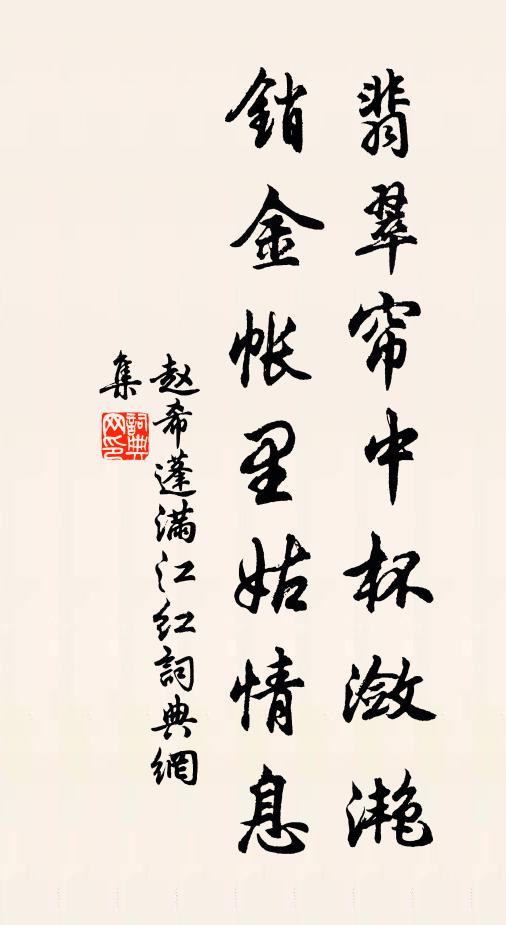 翡翠帘中杯潋滟
銷金帐里姑情息
赵希蓬满江红詞典網
集
詞典
网印